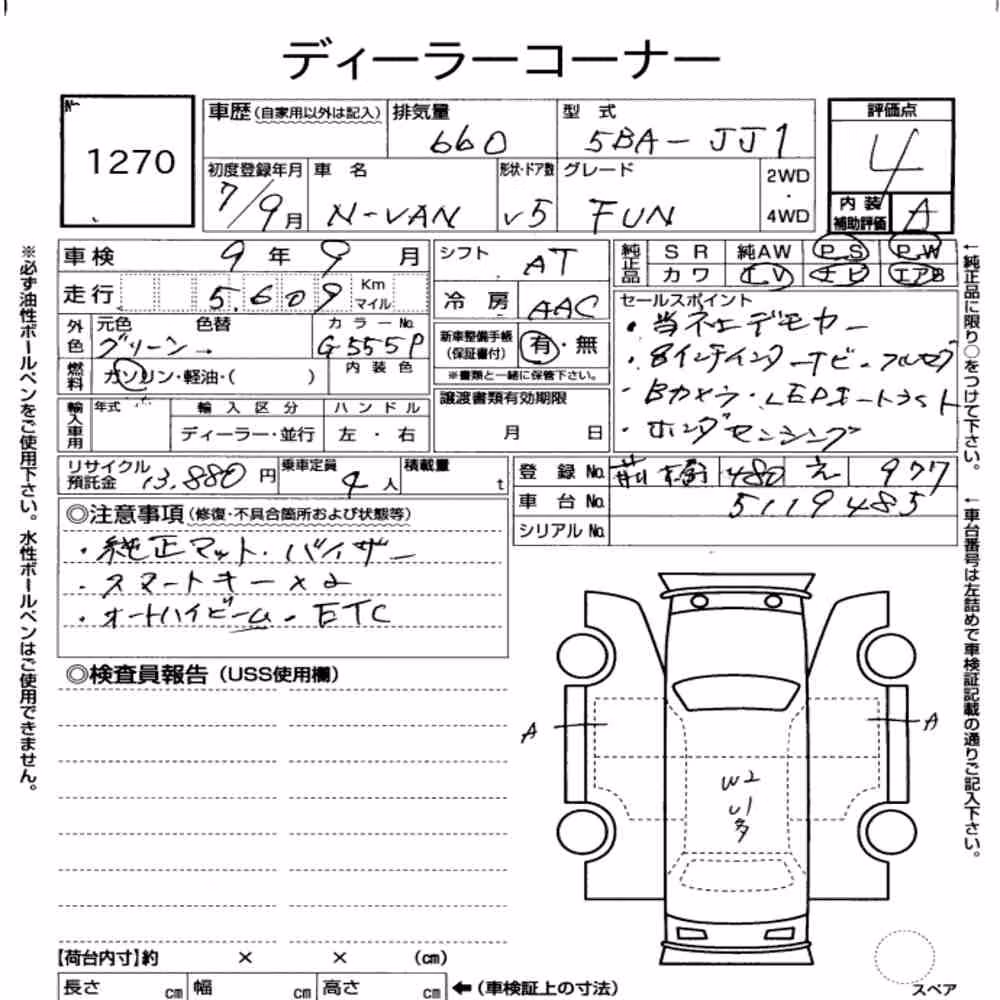 ディーラーコーナー
№
1270
車歴(自家用以外は記入)
排気量
660
型 式
5BA-JJ1
評価点
4
初度登録年月
7/9月
車 名
N-VAN
形状・ドア数
V5
グレード
FUN
2WD
・
4WD
内 装
補助評価
A
車検 9 年 9 月
走行 5,609 Km マイル
シフト AT
冷 房 AAC
純正品
S R 純AW P.S P.W
カワ T V ナビ エアB
外色
元色 色替
グリーン→
カラーNo.
G555P
燃料
ガソリン・軽油・( )
内 装 色
新車整備手帳
(保証書付)
有・無
※書類と一緒に保管下さい。
セールスポイント
・当社デモカー
・8インチインターナビ・フルセグ
・Bカメラ・LEDオートライト
・ホンダセンシング
輸入車用
年式
輸 入 区 分
ディーラー・並行
ハ ン ド ル
左 ・ 右
譲渡書類有効期限
月 日
リサイクル
預託金
13,880 円
乗車定員
4 人
積載量
t
登 録 No. 480 え 977
車 台 No. 5119485
シリアル No.
◎注意事項(修復・不具合箇所および状態等)
・純正マット・バイザー
・スマートキー×2
・オートハイビーム・ETC
◎検査員報告(USS使用欄)
A
A
W2
U1
多
【荷台内寸】約 × × (cm)
長さ cm 幅 cm 高さ cm
←(車検証上の寸法)
スペア
※必ず油性ボールペンをご使用下さい。水性ボールペンはご使用できません。
←純正品に限り○をつけて下さい。
←車台番号は左詰めで車検証記載の通りご記入下さい。